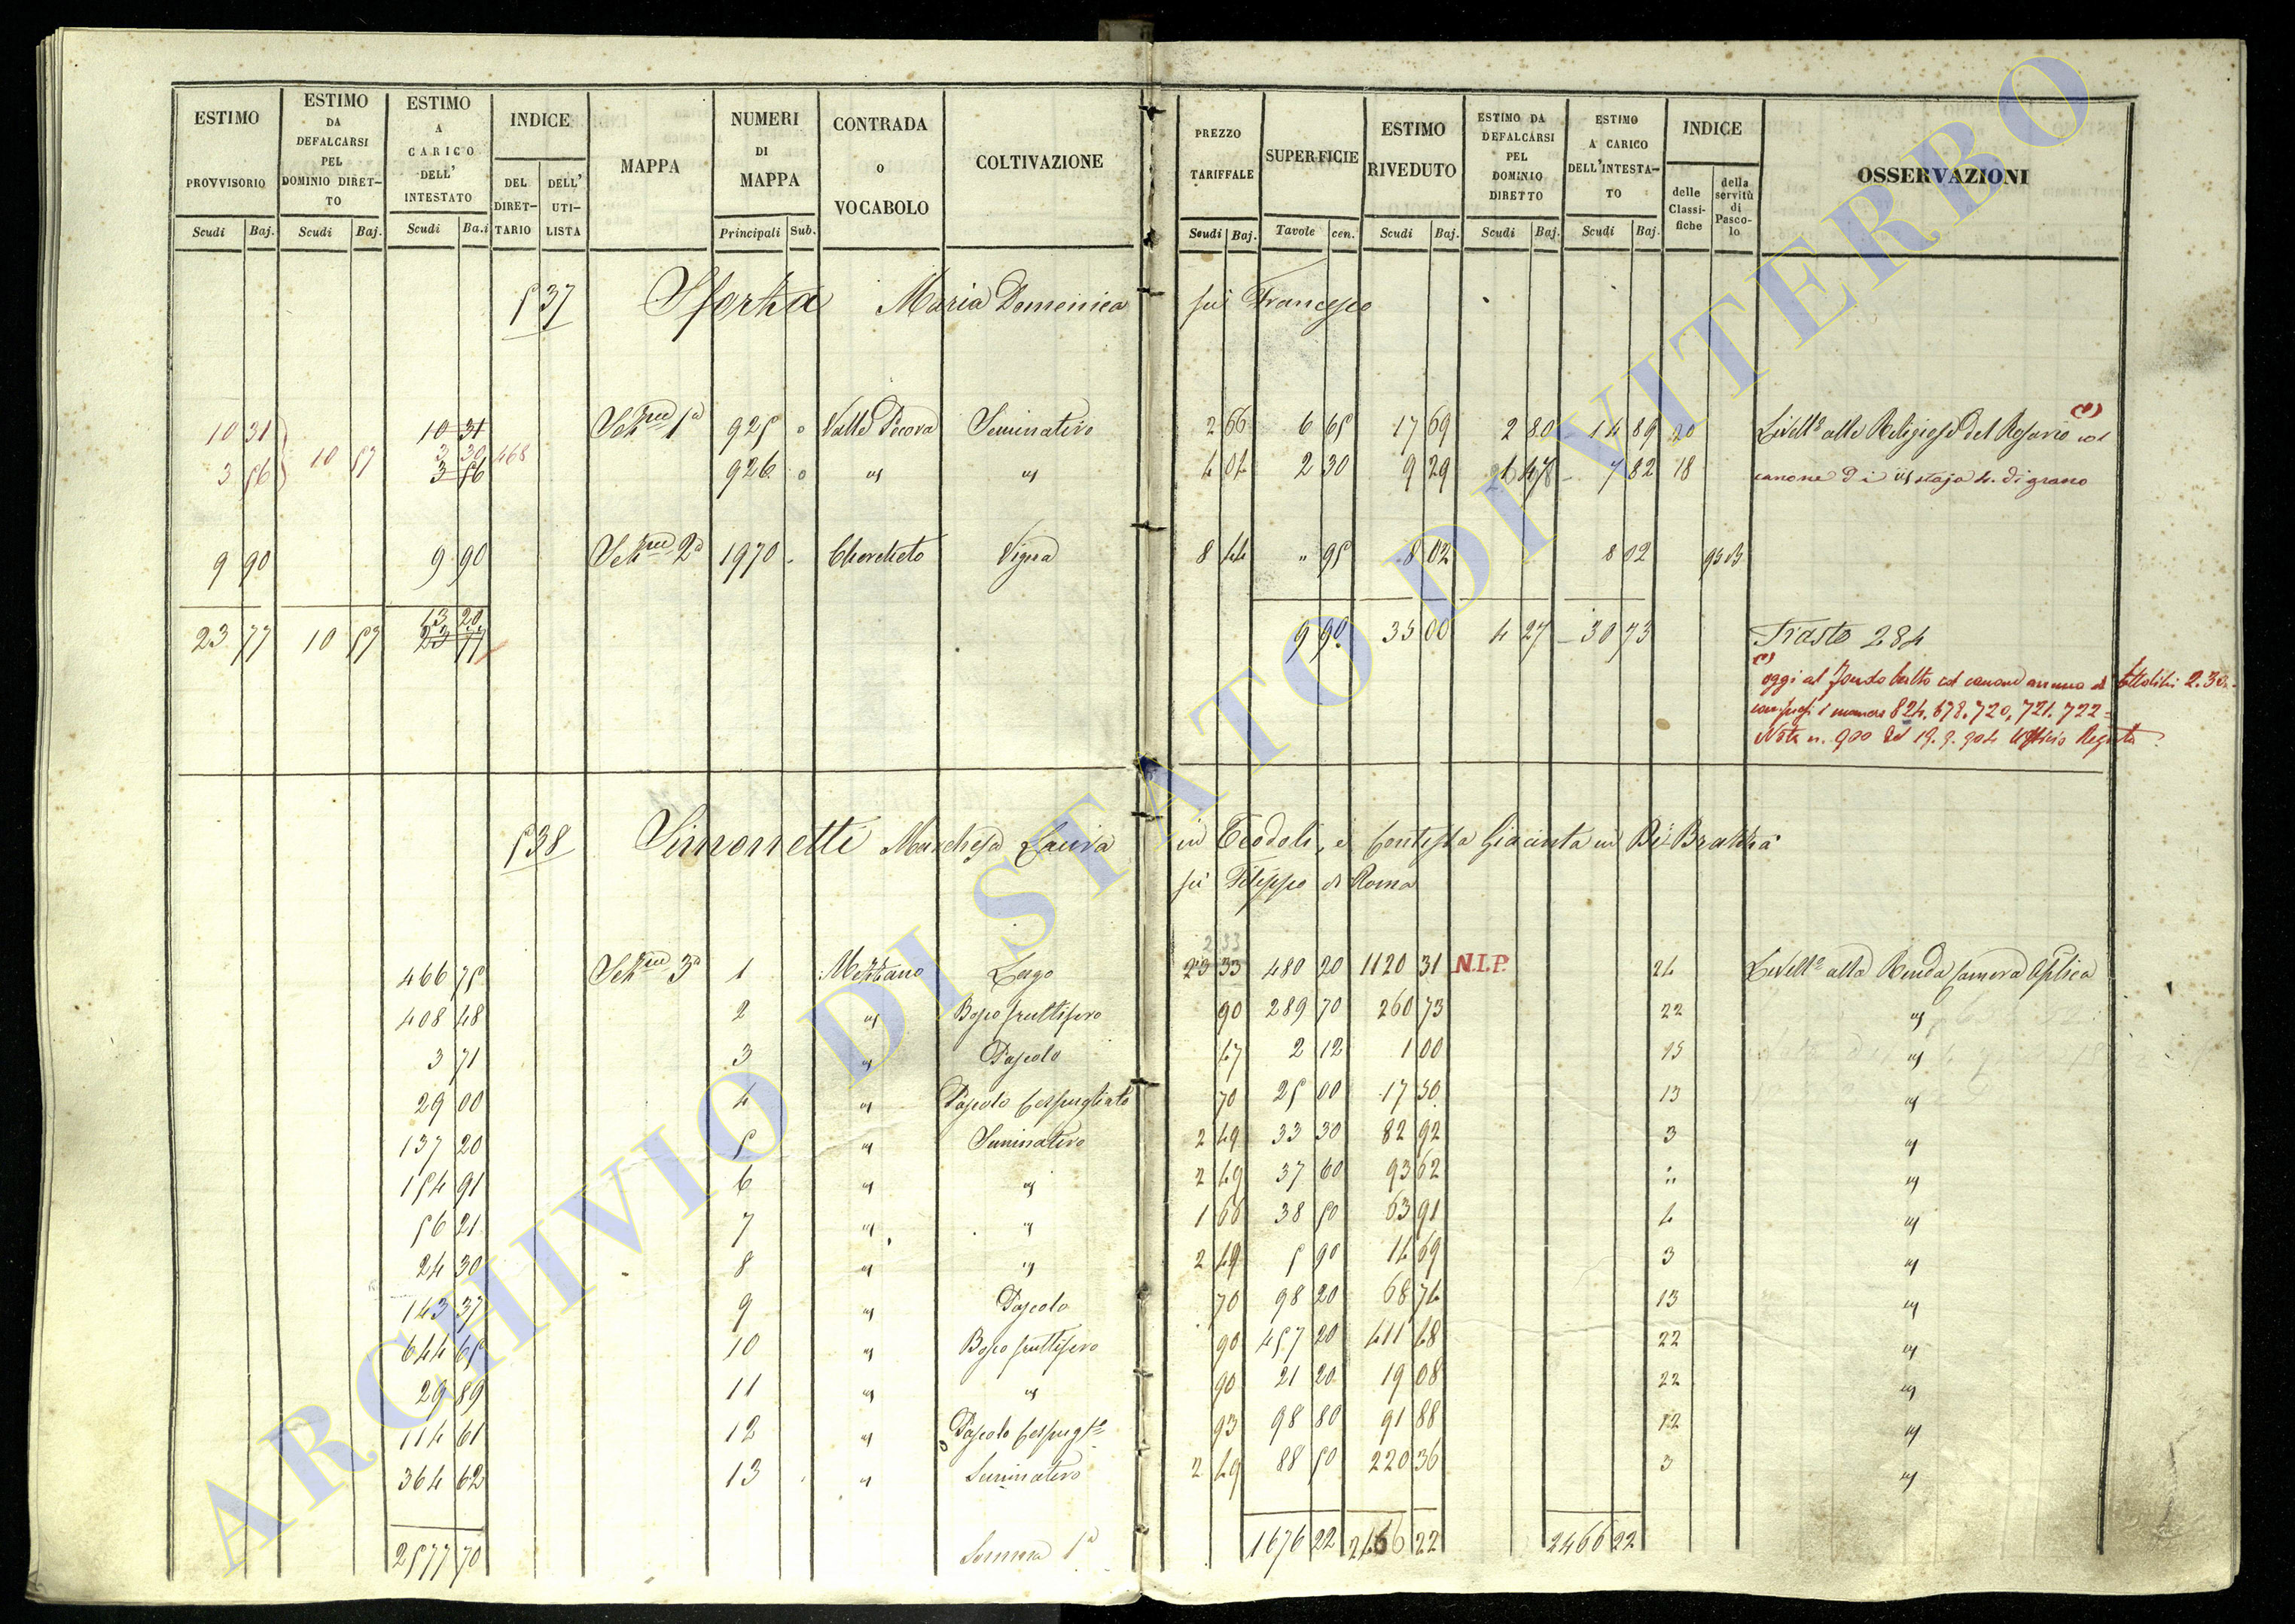 ESTIMO PROVVISORIO Scudi Baj.
ESTIMO DA DEFALCARSI PEL DOMINIO DIRET- TO Scudi Baj.
ESTIMO A CARICO DELL' INTESTATO Scudi Ba.i
INDICE DEL DIRET- TARIO DELL' UTI- LISTA
MAPPA
NUMERI DI MAPPA Principali Sub.
CONTRADA O VOCABOLO
COLTIVAZIONE
PREZZO TARIFFALE Scudi Baj.
SUPERFICIE Tavole cen.
ESTIMO RIVEDUTO Scudi Baj.
ESTIMO DA DEFALCARSI PEL DOMINIO DIRETTO Scudi Baj.
ESTIMO A CARICO DELL'INTESTA- TO Scudi Baj.
INDICE delle Classi- fiche della servitù di Pasco- lo
OSSERVAZIONI
537 Sforza Maria Domenica fu Francesco
10 31 10 31 Sezne 1a 925 0 Valle Pecora Seminativo 2 66 6 65 17 69 2 80 14 89 20 Livellº alle Religiose del Rosario (1) col
10 57 3 30 468
3 56 3 56 926 0 " " 4 04 2 30 9 29 1 47 7 82 18 canone di staja 4. di grano
9 90 9 90 Sezne 2a 1970 Chercheto Vigna 8 44 " 95 8 02 8 02 9 3
13 20
23 77 10 57 23 77 9 90 35 00 4 27 30 73 Trasto 284
(1) oggi al Fondo Culto col canone annuo di ettolitri 2.30
compresi i numeri 824. 678. 720, 721. 722
Nota n. 900 del 19. 9. 904 Ufficio Registro
538 Simonetti Marchesa Laura in Teodoli, e Contessa Giacinta in Di Brazzà
fu Filippo di Roma
2 33
466 75 Sezne 3a 1 Mezzano Lago 23 33 480 20 1120 31 N.I.P. 24 Livellº alla Renda Camera Aplica
408 48 2 " Bosco fruttifero 90 289 70 260 73 22 "
3 71 3 " Pascolo 47 2 12 1 00 15 "
29 00 4 " Pascolo Cespugliato 70 25 00 17 50 13 "
137 20 5 " Seminativo 2 49 33 30 82 92 3 "
154 91 6 " " 2 49 37 60 93 62 " "
56 21 7 " " 1 66 38 50 63 91 4 "
24 30 8 " " 2 49 5 90 14 69 3 "
143 37 9 " Pascolo 70 98 20 68 74 13 "
644 65 10 " Bosco fruttifero 90 457 20 411 48 22 "
29 89 11 " " 90 21 20 19 08 22 "
114 61 12 " Pascolo Cespugto 93 98 80 91 88 12 "
364 62 13 " Seminativo 2 49 88 50 220 36 3 "
2577 70 Somma 1a 1676 22 2466 22 2466 22
ARCHIVIO DI STATO DI VITERBO